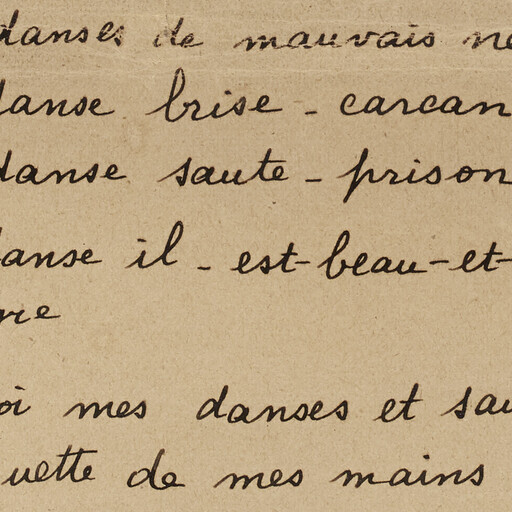 danses de mauvais nè
danse brise - carcan
danse saute - prison
danse il - est-beau-et-
re
oi mes danses et sau
uette de mes mains